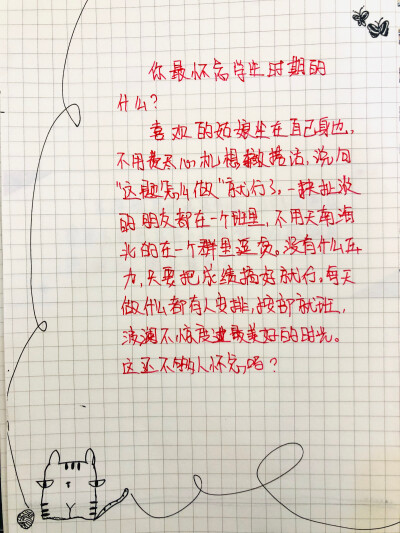 你最怀念学生时期的
什么?
喜欢的姑娘坐在自己身边,
不用费尽心机想搭话,说句
“这题怎么做”就行了,一块扯淡
的朋友都在一个班里,不用天南海
北的在一个群里逗贫。没有什么压
力,只要把成绩搞好就行。每天
做什么都有人安排,按部就班,
波澜不惊度过最美好的时光。
这还不够人怀念吗?